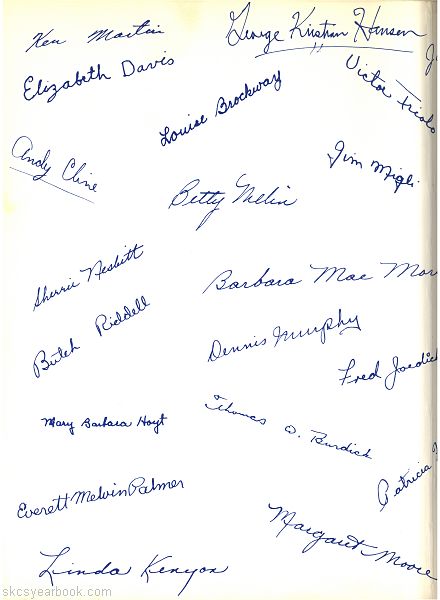 Ken Martin
George Kristian Hansen
Elizabeth Davis
Victor
Louise Brockway
Andy Cline
Jim Migli
Betty Melin
Sherrie Nesbitt
Barbara Mae
Butch Riddell
Dennis Murphy
Fred
Mary Barbara Hoyt
Thomas O. Burdick
Everett Melvin Palmer
Patricia
Margaret Moore
Linda Kenyon
skcsyearbook.com